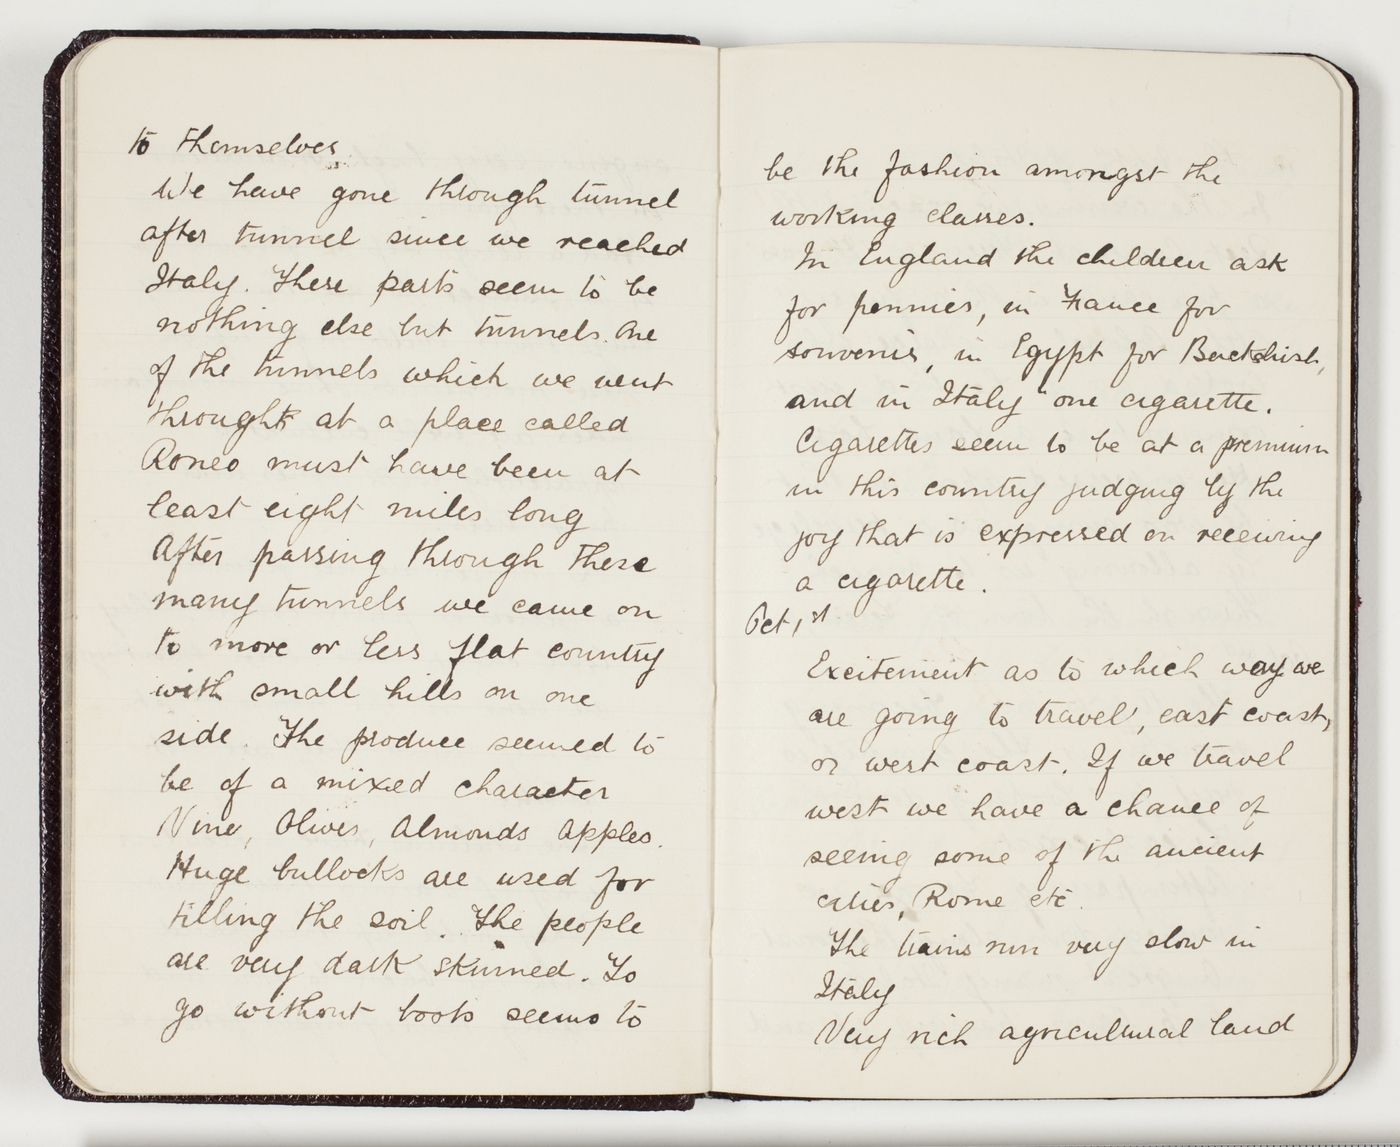 to themselves
We have gone through tunnel
after tunnel since we reached
Italy. These parts seem to be
nothing else but tunnels. One
of the tunnels which we went
through at a place called
Roneo must have been at
least eight miles long
After passing through these
many tunnels we came on
to more or less flat country
with small hills on one
side. The produce seemed to
be of a mixed character
Vine, Olives, Almonds Apples.
Huge bullocks are used for
tilling the soil. The people
are very dark skinned. To
go without boots seems to
be the fashion amongst the
working classes.
In England the children ask
for pennies, in France for
souvenirs, in Egypt for Backshish,
and in Italy "one cigarette.
Cigarettes seem to be at a premium
in this country judging by the
joy that is expressed on receiving
a cigarette.
Oct, 1st
Excitement as to which way we
are going to travel, east coast,
or west coast. If we travel
west we have a chance of
seeing some of the ancient
cities, Rome etc.
The trains run very slow in
Italy
Very rich agricultural land